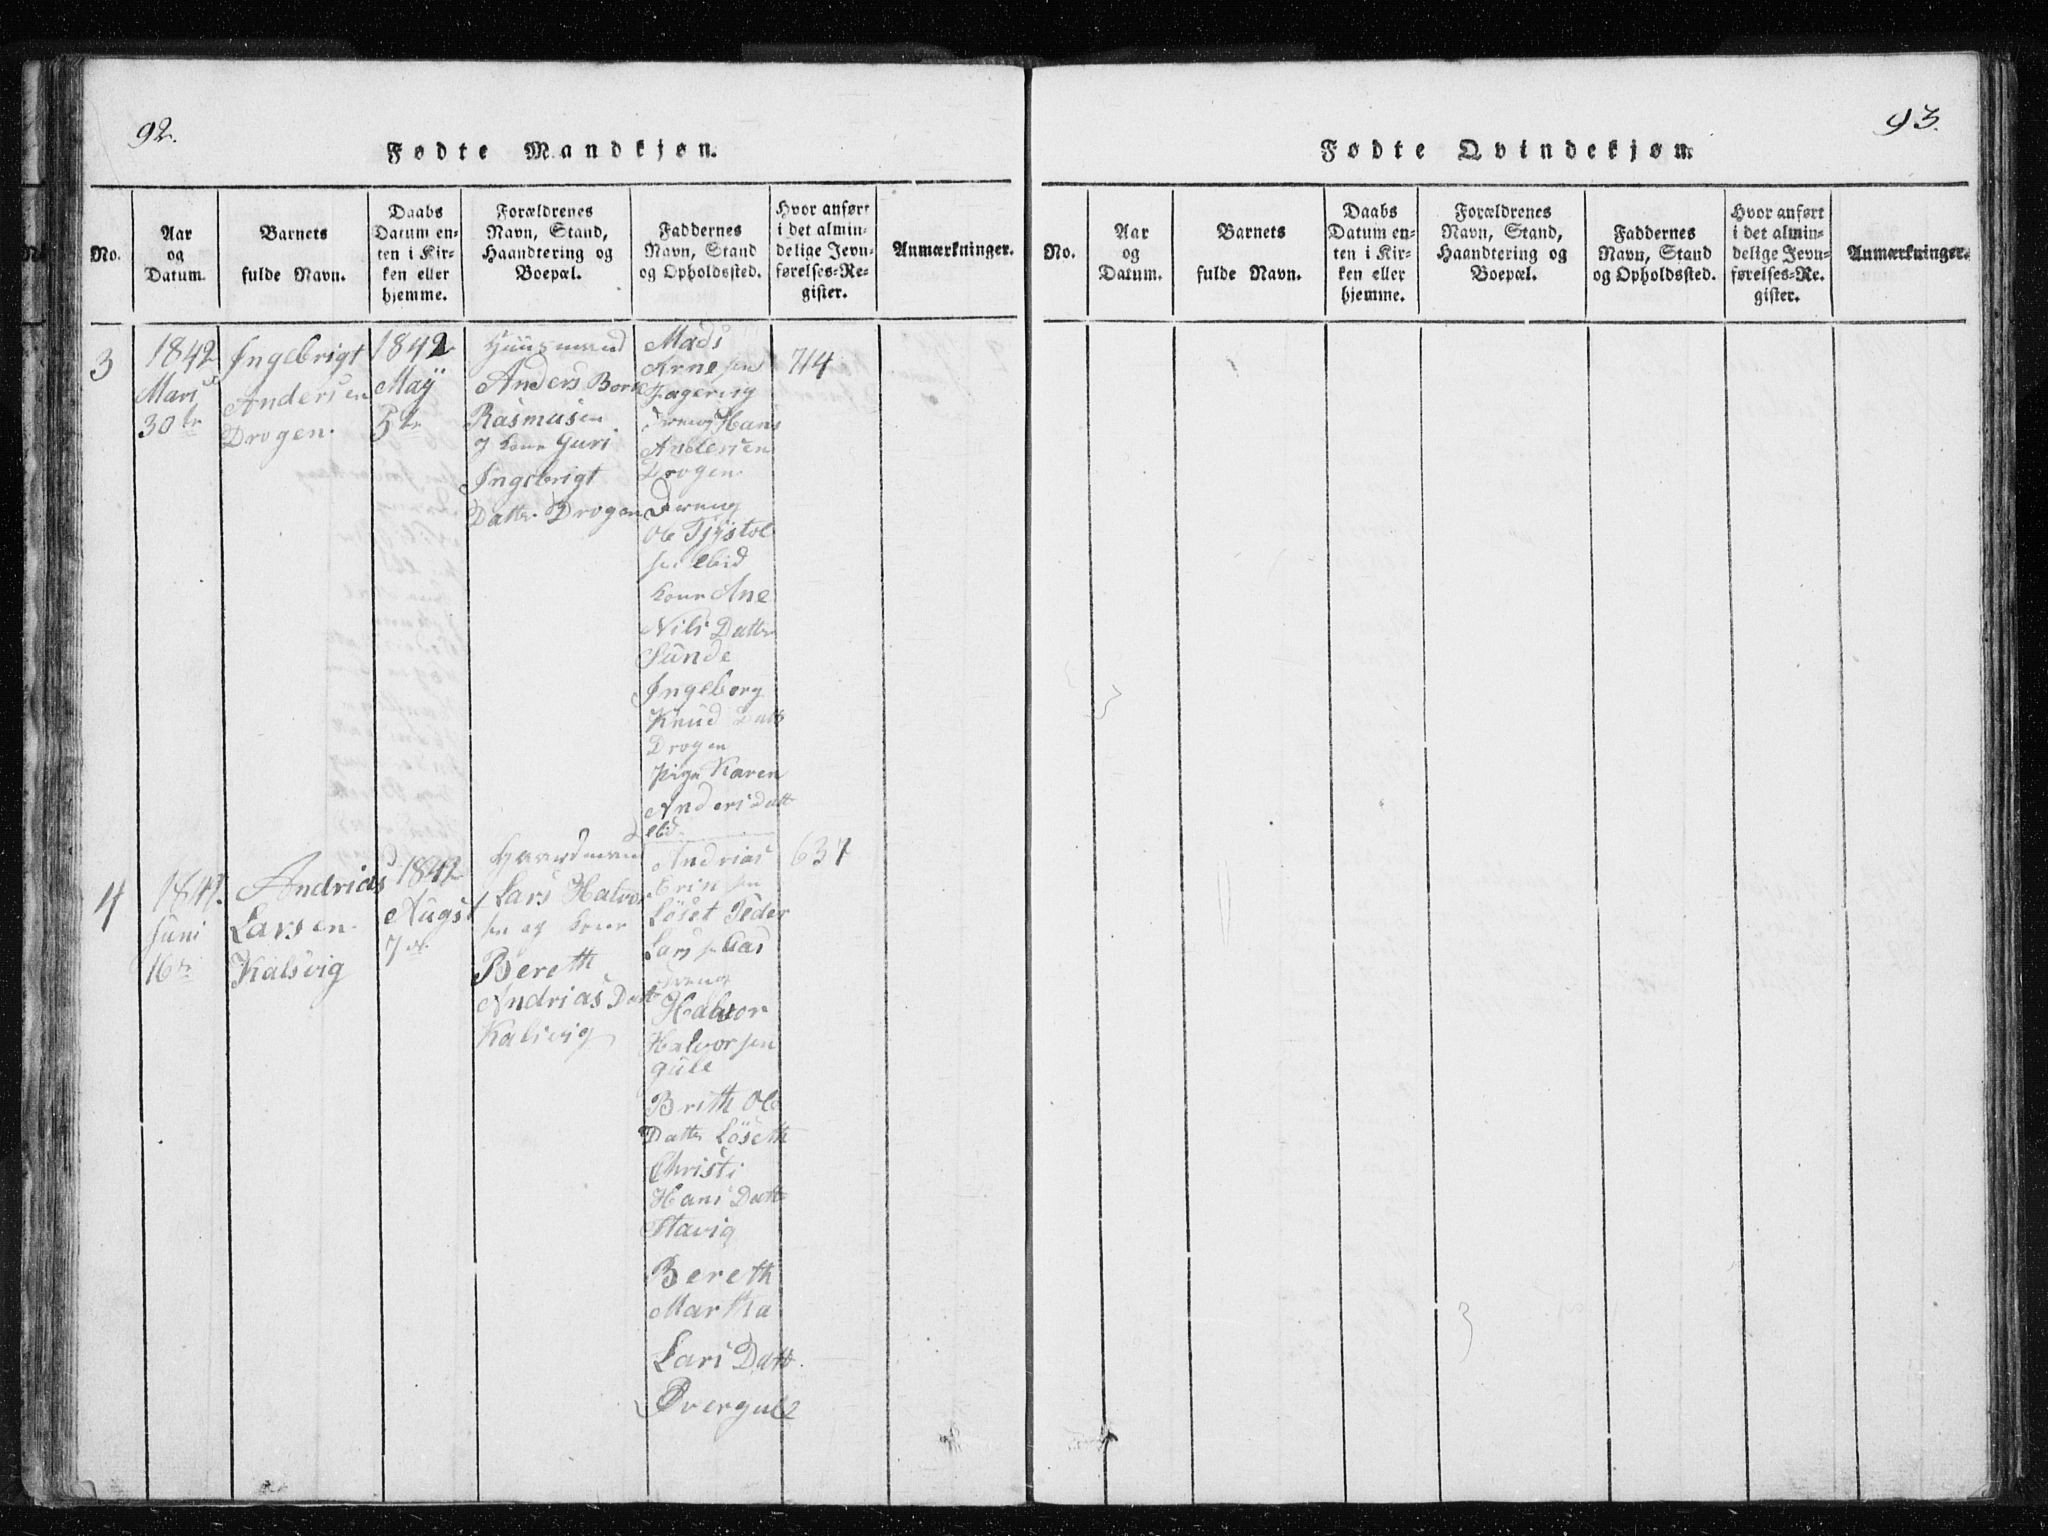 92.
Fødte Mandkjøn.
No.
Aar
og
Datum.
Barnets
fulde Navn.
Daabs
Datum en-
ten i Kir-
ken eller
hjemme.
Forældrenes
Navn, Stand,
Haandtering og
Boepæl.
Faddernes
Navn, Stand
og Opholdssted.
Hvor anført
i det almin-
delige Jevn-
førelses-Re-
gister.
Anmærkninger.
3
1842
Mars
30te
Ingebrigt
Andersen
Drogen
1842
Maÿ
5te
Huusmand
Anders
Rasmusen
og kone Guri
Ingebrigt
Datter Drogen
Mads
Arnesen
Fagervig
Dreng Hans
Andersen
Drogen
Dreng
Ole
sen ibid
kone Ane
Nils Datter
Sunde
Ingeborg
Knud Datt
Drogen
Pige Karen
Anders Datt
ibid
714
4
Juni
16de
Andrias
Larsen
Kalsvig
1842
Augst
7de
Gaardmand
Lars Halvor
sen og kone
Bereth
Andrias Datt
Kalsvig
Andrias
sen
Løset Peder
Lars sen Aas
Dreng
Halvor
Halvorsen
gule
Brith Ole
Datter Løseth
Christi
Hans Datt
Stavig
Bereth
Martha
Lars Datt
Øvergule
637
93.
Fødte Qvindekjøn.
No.
Aar
og
Datum.
Barnets
fulde Navn.
Daabs
Datum en-
ten i Kir-
ken eller
hjemme.
Forældrenes
Navn, Stand,
Haandtering og
Boepæl.
Faddernes
Navn, Stand
og Opholdssted.
Hvor anført
i det almin-
delige Jevn-
førelses-Re-
gister.
Anmærkninger.